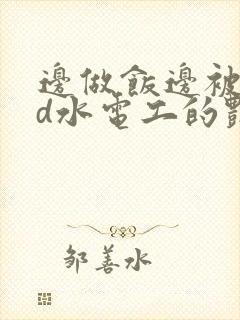 邊做飯邊被
d水電工的
鄒善水